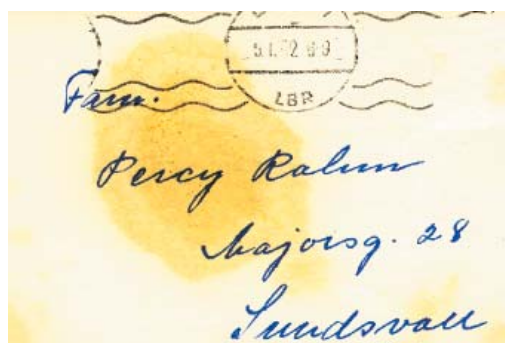 5.1.
LBR
Fam.
Percy Rahm
Majorsg. 28
Sundsvall